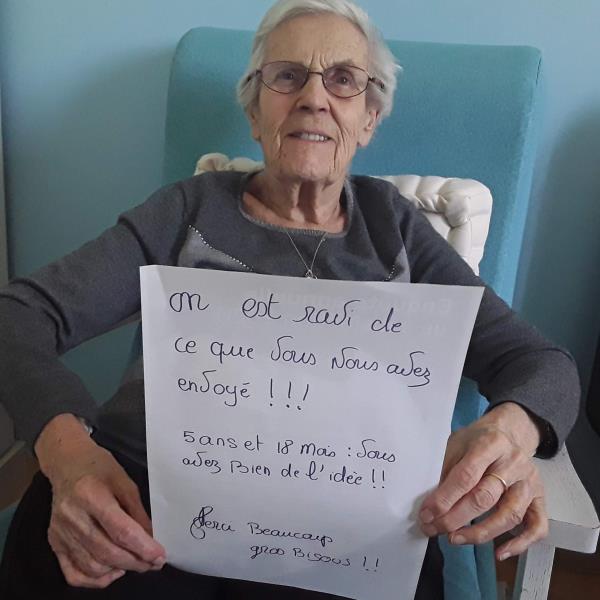 on est ravi de
ce que vous nous avez
envoyé !!!
5 ans et 18 mois : vous
avez Bien de l'idée !!
Merci Beaucoup
gros Bisous !!